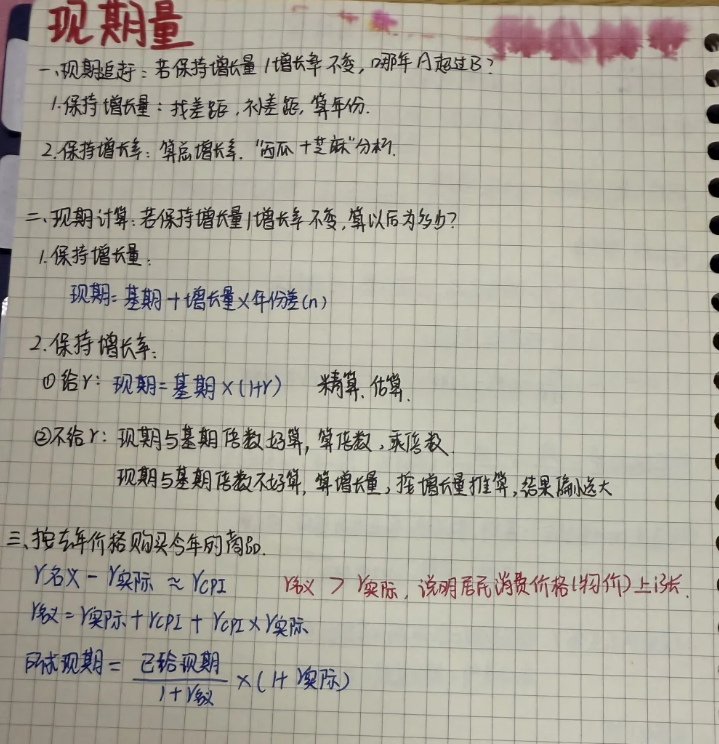 现期量
一、现期追赶：若保持增长量/增长率不变，哪年A超过B？
1.保持增长量：找差距，补差距，算年份.
2.保持增长率：算总增长率．“西瓜+芝麻”分析.
二、现期计算：若保持增长量/增长率不变，算以后为多少？
1.保持增长量：
现期=基期+增长量×年份差(n)
2.保持增长率：
①给r：现期=基期×(1+r) 精算、估算．
②不给r：现期与基期倍数好算，算倍数，乘倍数．
现期与基期倍数不好算，算增长量，按增长量推算，结果偏小选大
三、按去年价格购买今年的商品．
r名义-r实际≈rCPI r名义>r实际，说明居民消费价格(物价)上涨．
r名义=r实际+rCPI+rCPI×r实际
所求现期=已给现期/1+r名义×(1+r实际)